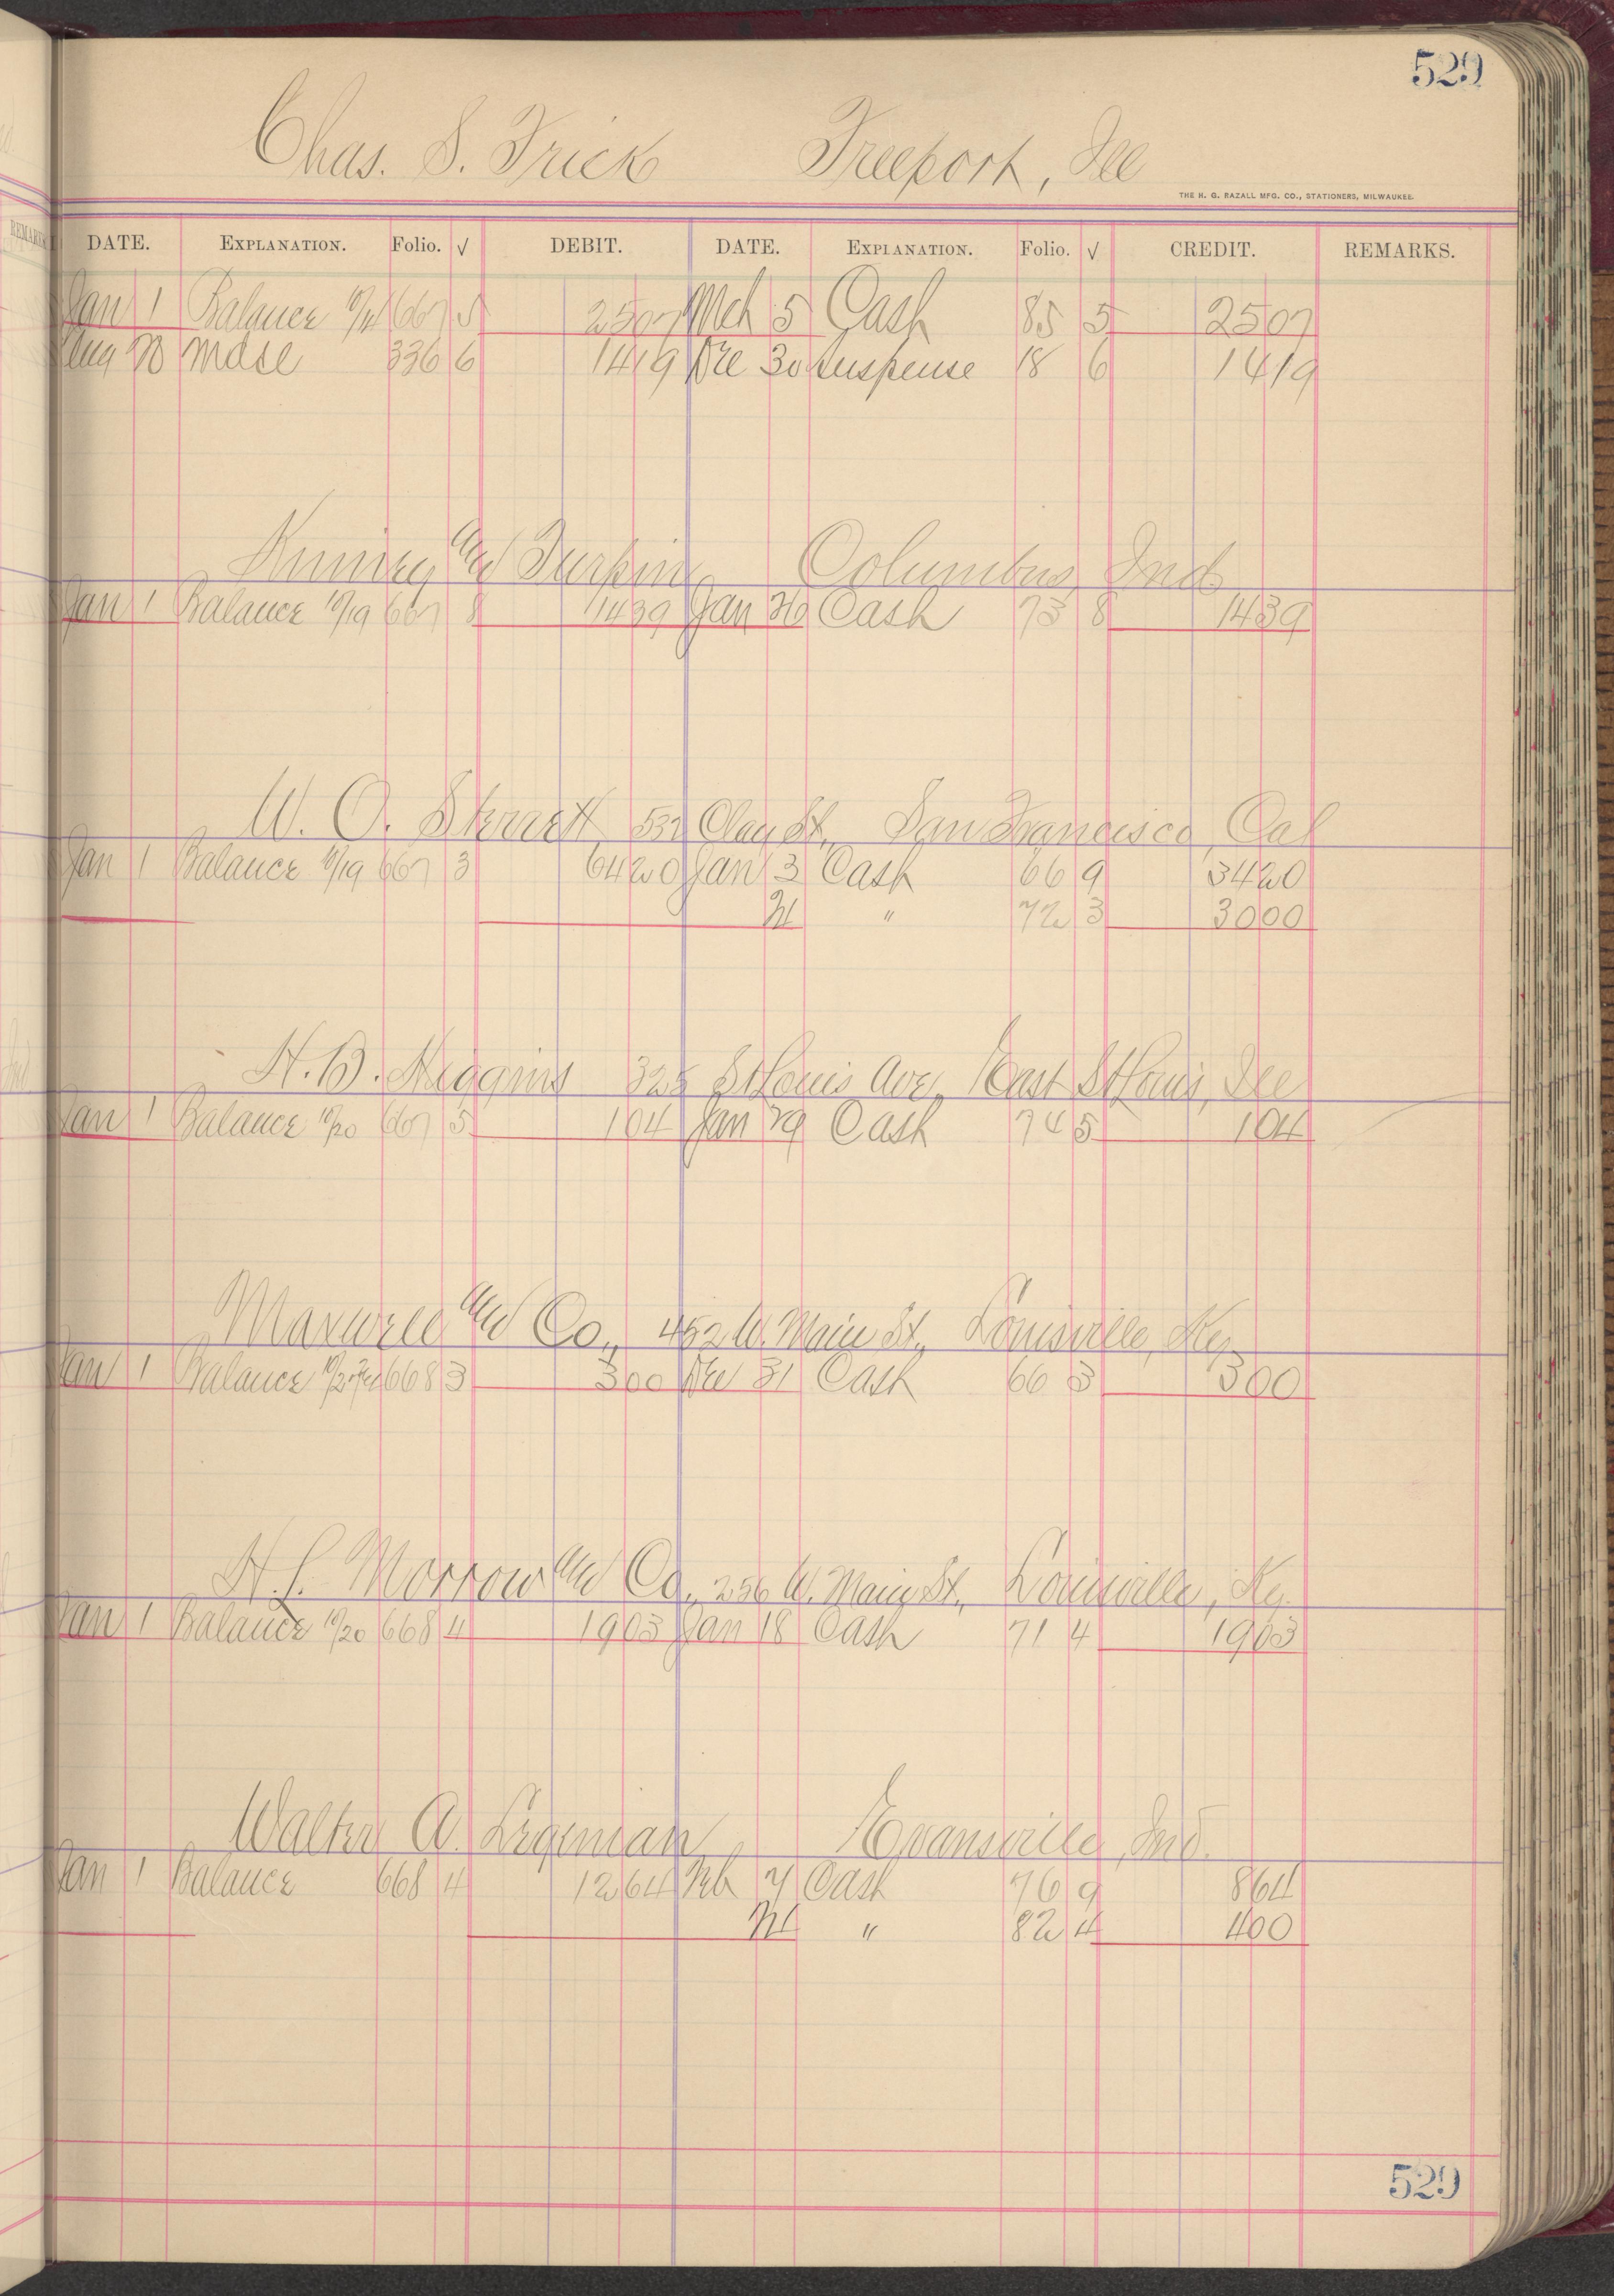 529
Chas. S. Frick Freeport, Ill
THE H. G. RAZALL MFG. CO., STATIONERS, MILWAUKEE.
DATE. EXPLANATION. Folio. √ DEBIT. DATE. EXPLANATION. Folio. √ CREDIT. REMARKS.
Jan 1 Balance 667 5 2507 Mch 5 Cash 85 5 2507
Aug 20 Mdse 336 6 1419 Dec 30 Suspense 18 6 1419
and Turpin Columbus, Ind
Jan 1 Balance 10/19 667 8 1439 Jan 26 Cash 73 8 1439
W. O. 531 Clay St., San Francisco, Cal
Jan 1 Balance 10/19 667 3 6420 Jan 3 Cash 66 9 3420
21 " 72 3 3000
H. B. Higgins 325 St Louis Ave, East St Louis, Ill
Jan 1 Balance 10/20 667 5 104 Jan 29 Cash 74 5 104
Maxwell and Co., 452 W. Main St., Louisville, Ky.
Jan 1 Balance 668 3 300 Dec 31 Cash 66 3 300
H. L. Morrow and Co., 256 W. Main St., Louisville, Ky.
Jan 1 Balance 10/20 668 4 1903 Jan 18 Cash 71 4 1903
Walter A. Legeman Evansville, Ind.
Jan 1 Balance 668 4 1264 Feb 4 Cash 76 9 864
21 " 82 4 400
529